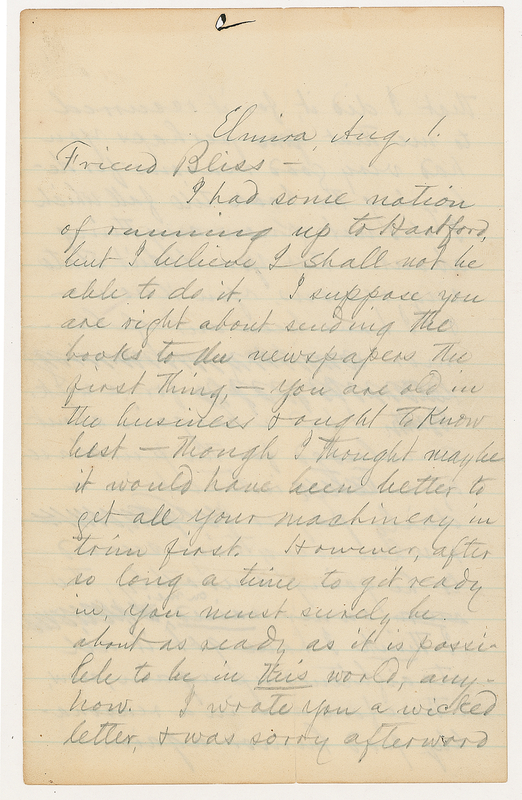 Elmira, Aug. 1.
Friend Bliss —
I had some notion
of running up to Hartford,
but I believe I shall not be
able to do it. I suppose you
are right about sending the
books to the newspapers the
first thing, — you are old in
the business & ought to know
best — though I thought maybe
it would have been better to
get all your machinery in
trim first. However, after
so long a time to get ready
in, you must surely be
about as ready as it is possi-
ble to be in this world, any-
how. I wrote you a wicked
letter, & was sorry afterward